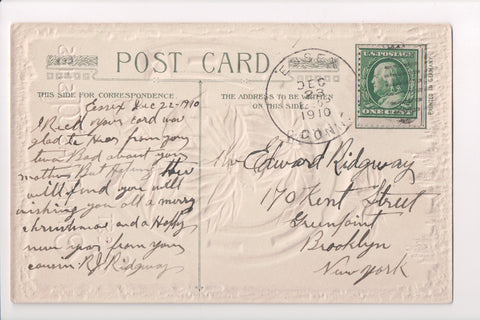 U.S. POSTAGE
POST CARD
ESSEX
DEC
23
1910
CONN.
ONE CENT
THIS SIDE FOR CORRESPONDENCE
THE ADDRESS TO BE WRITTEN
ON THIS SIDE.
Essex Dec 22-1910
I Recd your card was
glad to Hear from you
Bad about your
mother But Hoping
will find you well
wishing you all a merry
christmas and a Happy
new year from your
cousin RJ Ridgway
Mr Edward Ridgway
170 Kent Street
Greenpoint
Brooklyn
New york